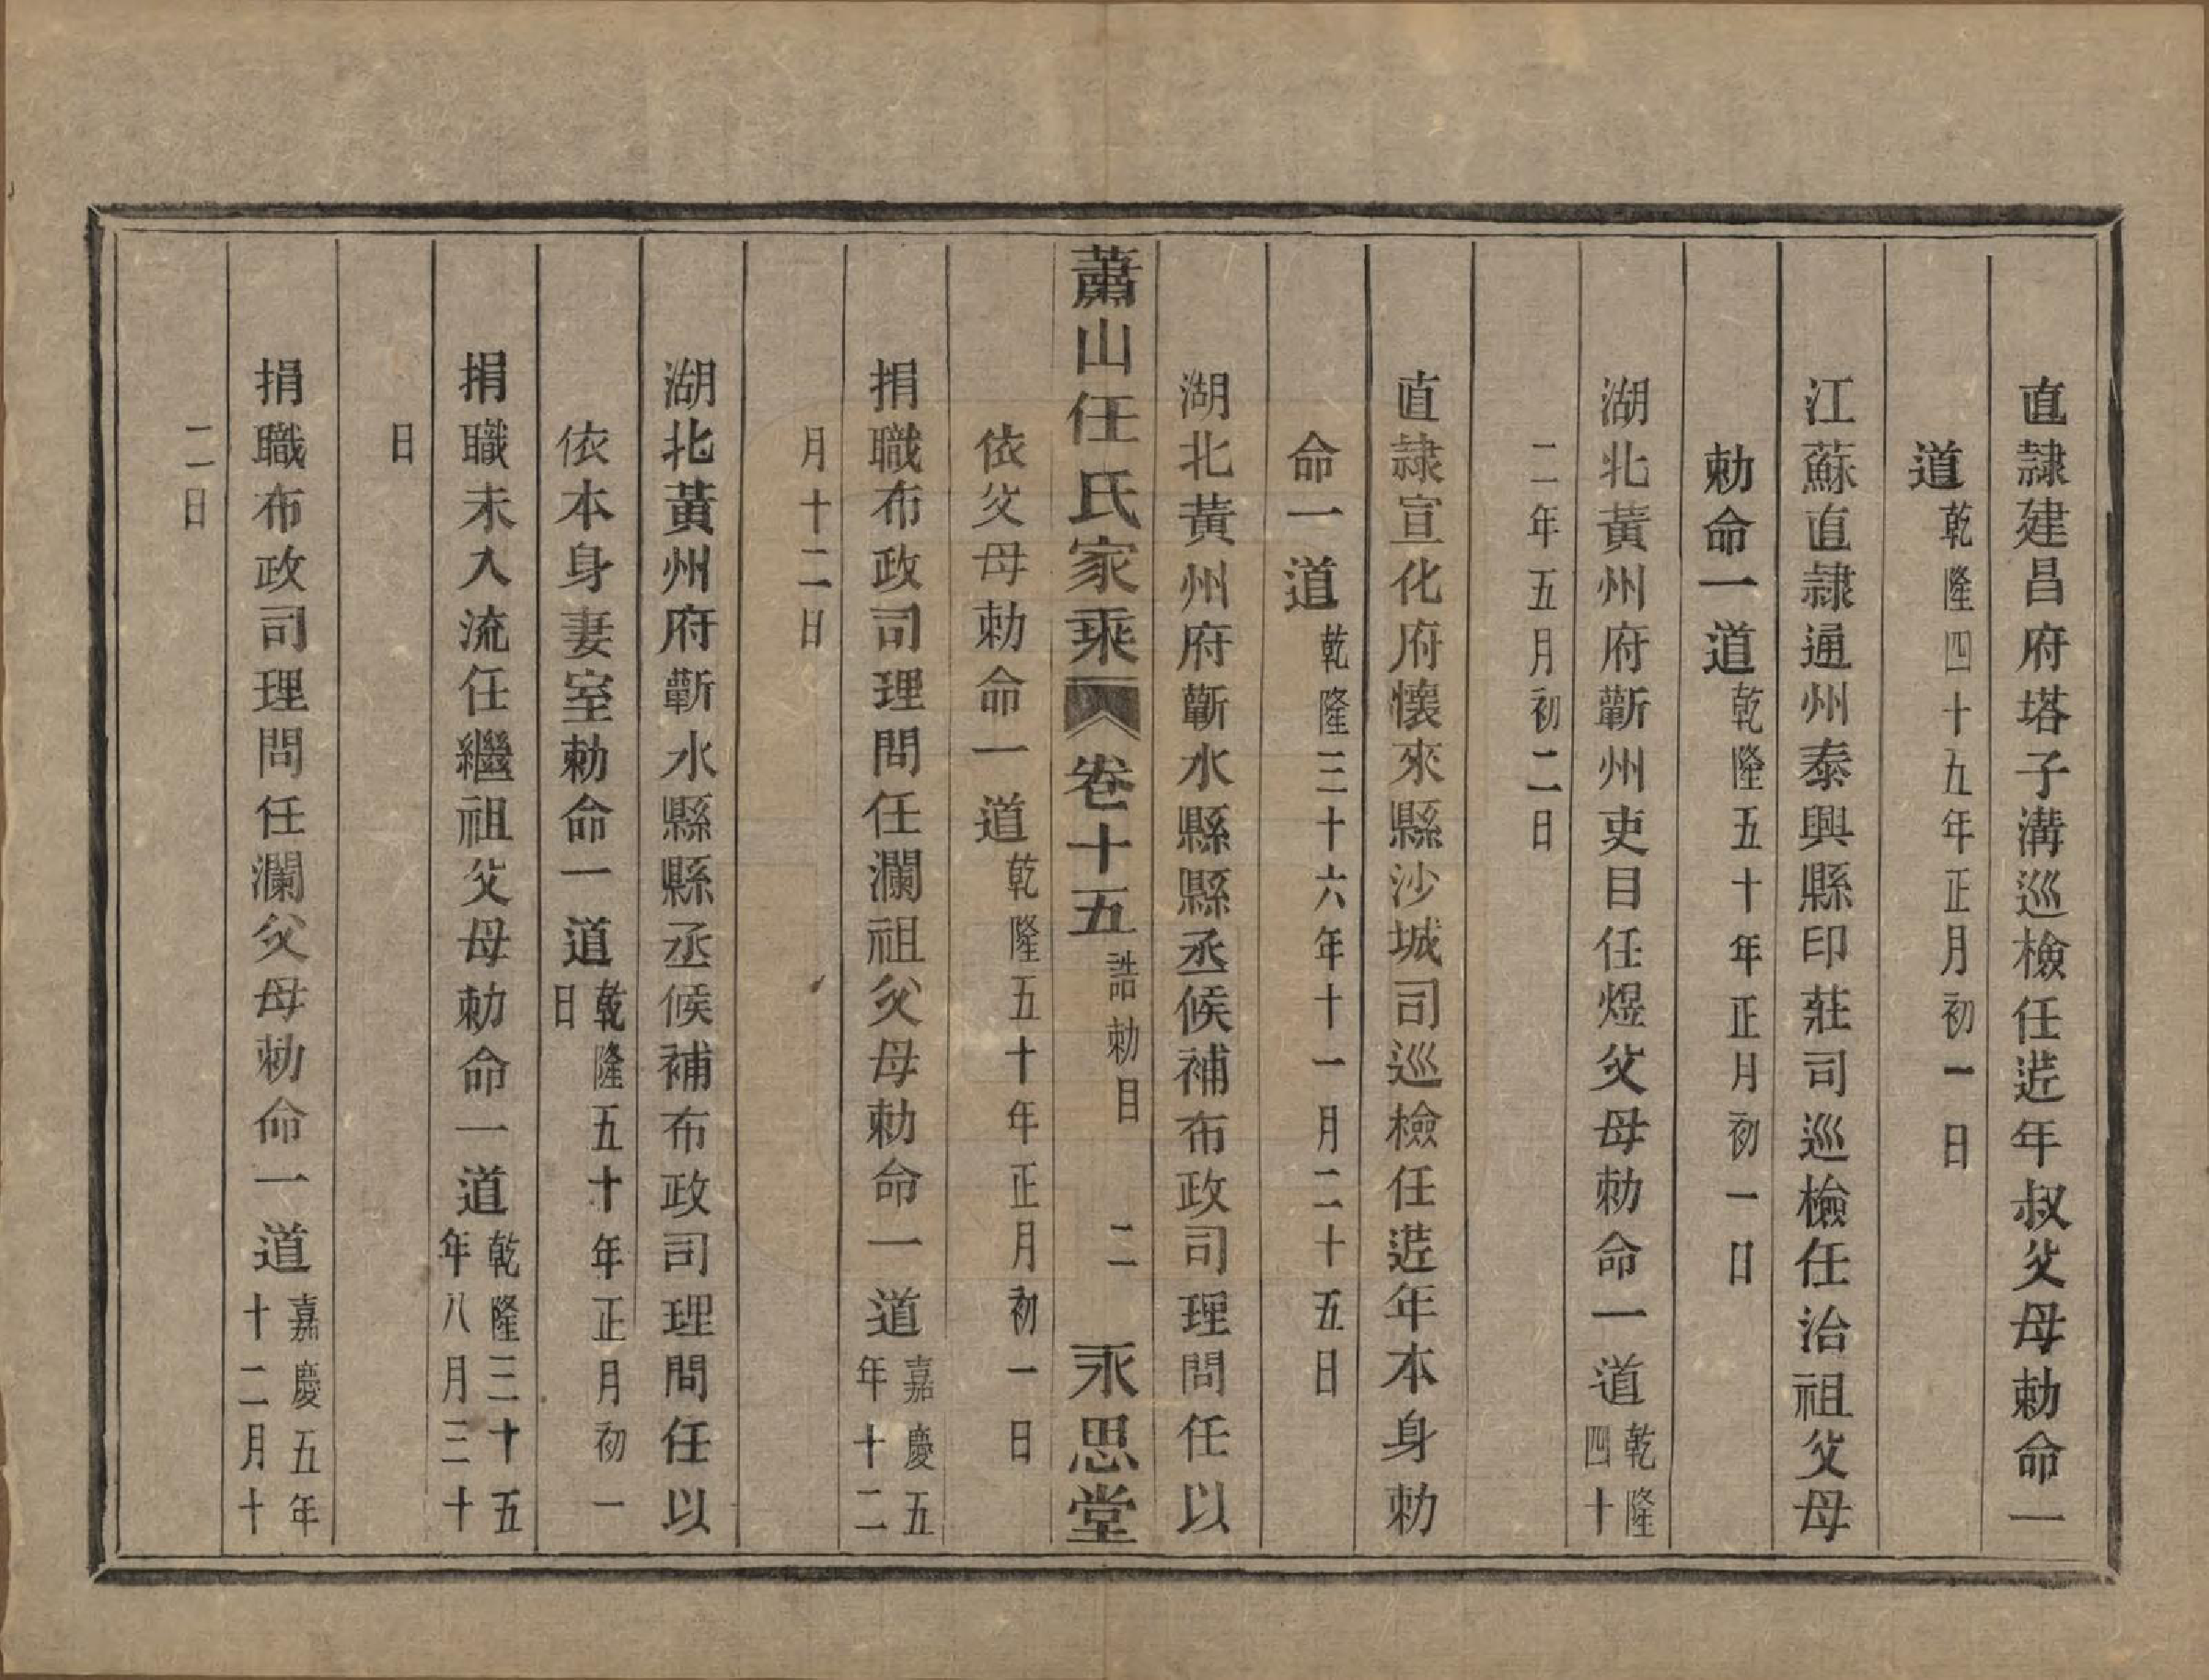 直隸建昌府塔子溝巡檢任遟年叔父母勅命一
道乾隆四十九年正月初一日
江蘇直隸通州泰興縣印莊司巡檢任治祖父母
勅命一道乾隆五十年正月初一日
湖北黃州府蘄州吏目任煜父母勅命一道乾隆四十
二年五月初二日
直隸宣化府懷來縣沙城司巡檢任遟年本身勅
命一道乾隆三十六年十一月二十五日
湖北黃州府蘄水縣縣丞候補布政司理問任以
依父母勅命一道乾隆五十年正月初一日
蕭山任氏家乘 卷十五 誥勅目 二 永思堂
捐職布政司理問任瀾祖父母勅命一道嘉慶五年十二
月十二日
湖北黃州府蘄水縣縣丞候補布政司理問任以
依本身妻室勅命一道乾隆五十年正月初一日
捐職未入流任繼祖父母勅命一道乾隆三十五年八月三十
日
捐職布政司理問任瀾父母勅命一道嘉慶五年十二月十
二日